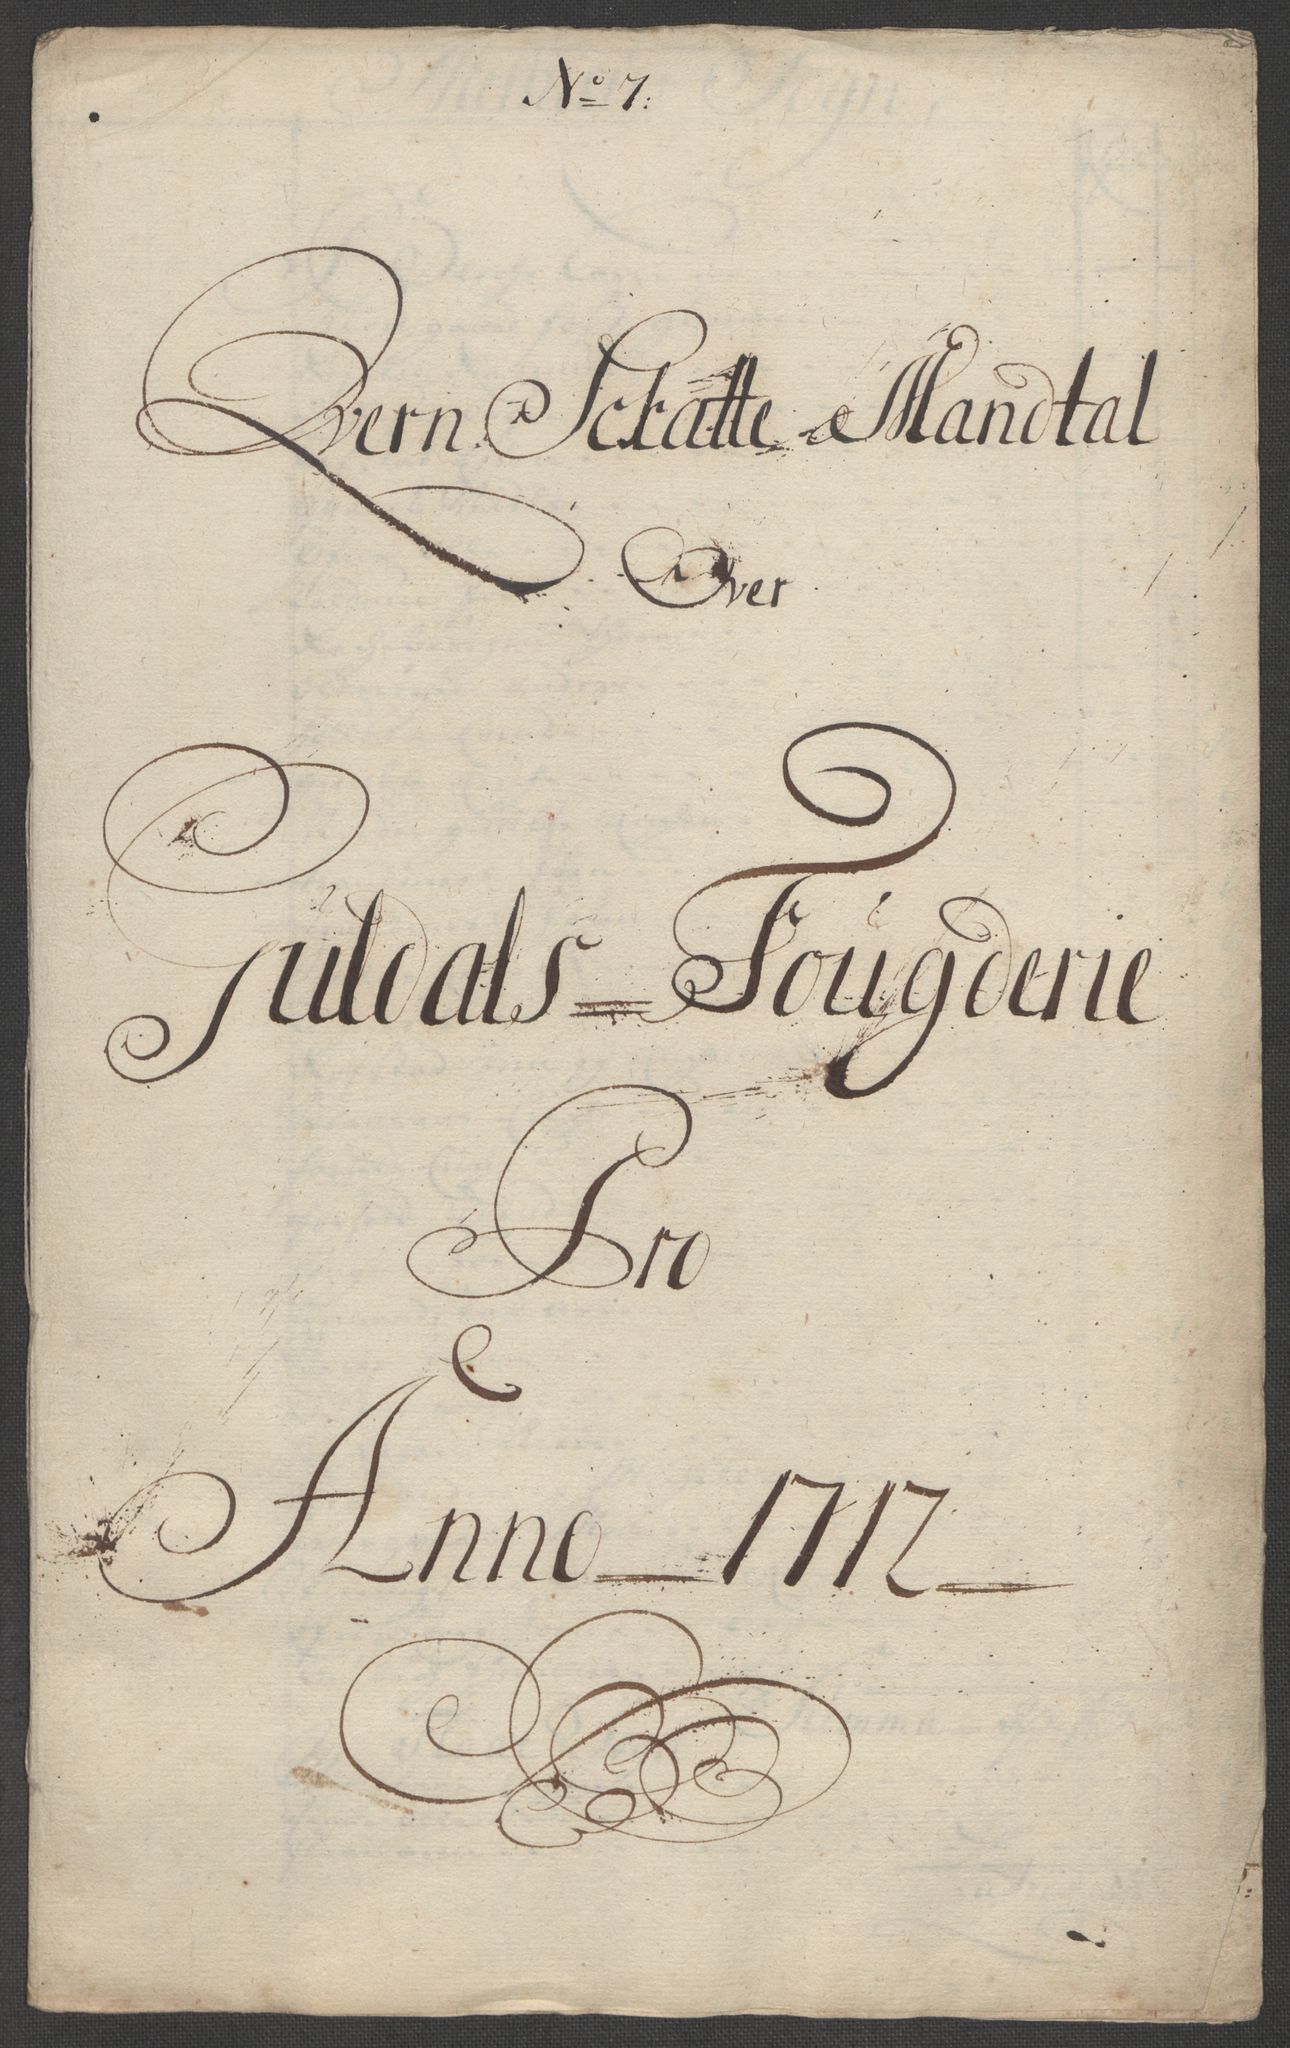 No 7:
Qvern Schatte Mandtal
Over
Guldals Fougderie
Pro
Anno 1712